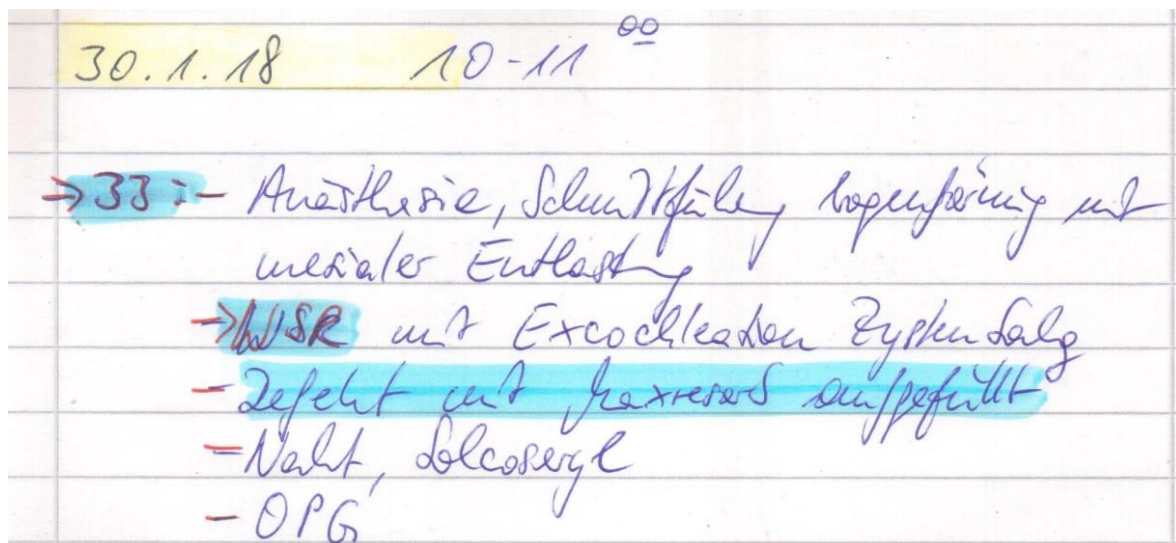 30.1.18 10-11 00
→ 33:- Anästhesie, Schnittführung bogenförmig mit
mesialer Entlastung
→ WSR mit Excochleation Zystenbalg
- Defekt mit Maxresorb aufgefüllt
- Naht, Solcoseryl
- OPG